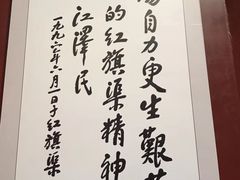 自力更生艰
的红旗渠精神
江泽民
一九九六年六月一日于红旗渠